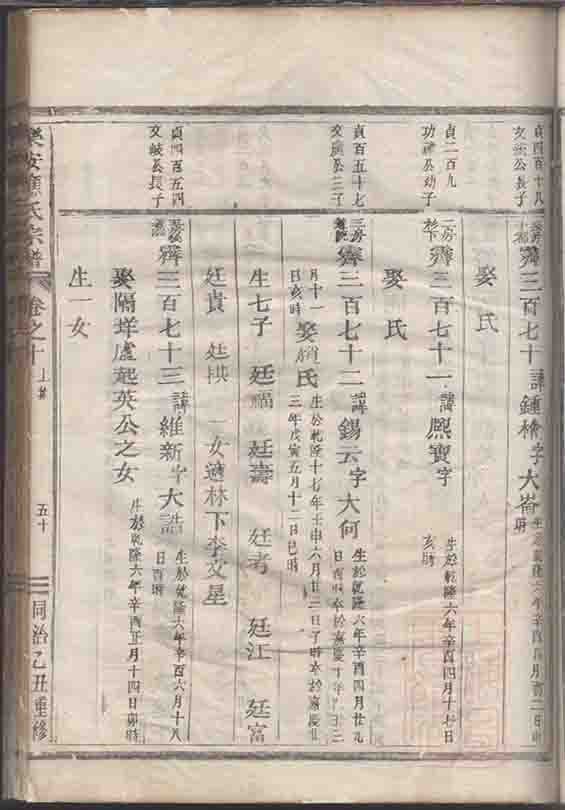 貞四百十八
文 公長子
齊三百七十
諱鍾 字大崙
生 乾隆六年辛酉
娶氏
貞二百九
功 公幼子
二房
齊三百七十一
諱熙寶字
生於乾隆六年辛酉四月十七日
亥時
娶氏
貞百五十七
文 公三子
三房
齊三百七十二
諱錫云字大何
生於乾隆六年辛酉四月廿九
日酉時卒於嘉慶十年
月十一
日亥時
娶 氏
生於乾隆十七年壬申六月廿二日 時卒於嘉慶廿
三年戊寅五月十二日巳時
生七子 廷福 廷壽 廷考 廷江 廷富
廷貴 廷拱 一女適林下李文星
貞四百五四
文岐公長子
齊三百七十三
諱維新字大誥
生於乾隆六年辛酉六月十八
日酉時
娶隔垟盧起英公之女
生於乾隆六年辛酉正月十四日卯時
生一女
樂安 氏宗譜
卷之十
五十
同治乙丑重修